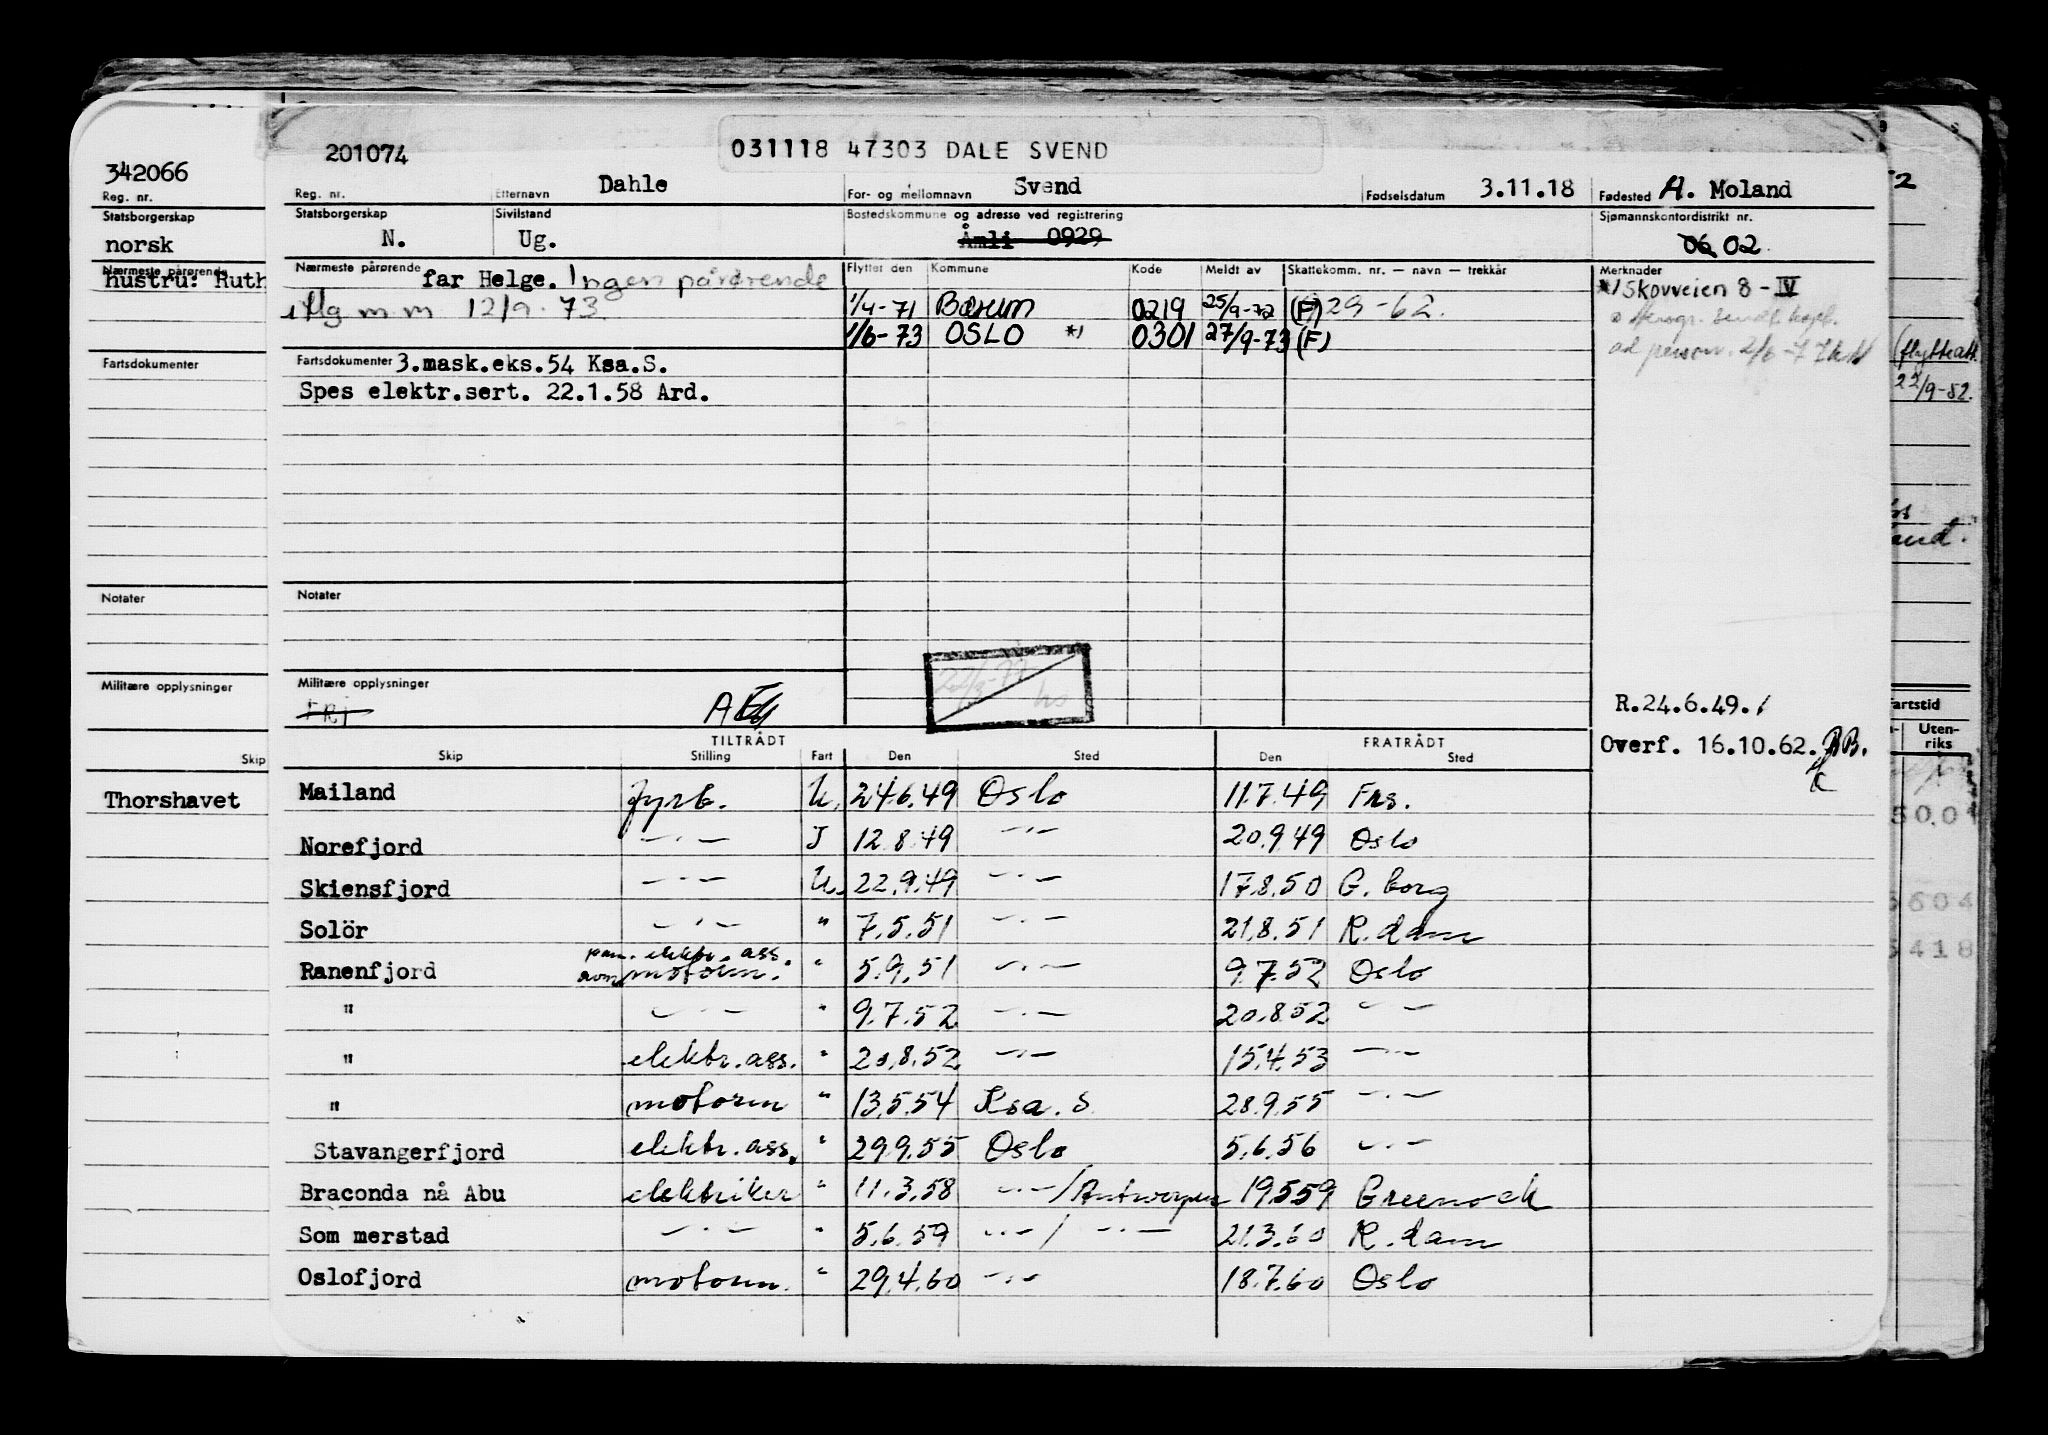 342066
Reg. nr.
Statsborgerskap
norsk
Nærmeste pårørende
hustru: Ruth
Fartsdokumenter
Notater
Militære opplysninger
Skip
Thorshavet
201074
031118 47303 DALE SVEND
Reg. nr. Etternavn Dahle For- og mellomnavn Svend Fødselsdatum 3.11.18 Fødested A. Moland
Statsborgerskap Sivilstand Bostedskommune og adresse ved registrering Sjømannskontordistrikt nr.
N. Ug. Åmli 0929 06 02
Nærmeste pårørende far Helge. Ingen pårørende Flyttet den Kommune Kode Meldt av Skattekomm. nr. — navn — trekkår Merknader
*) Skovveien 8 - IV
mm 12/9-73. 1/4-71 Bærum 0219 25/9-72 (F) 29-62.
1/6-73 OSLO *) 0301 27/9-73 (F)
Fartsdokumenter 3.mask.eks.54 Ksa.S.
Spes elektr.sert. 22.1.58 Ard.
Notater
Militære opplysninger
FRI
R.24.6.49.
Overf. 16.10.62. BB.
TILTRÅDT FRATRÅDT
Skip Stilling Fart Den Sted Den Sted
Mailand fyrb. U. 24.6.49 Oslo 11.7.49 Frs.
Norefjord —·— J 12.8.49 —·— 20.9.49 Oslo
Skiensfjord —·— U. 22.9.49 —·— 17.8.50 G.borg
Solör —·— " 7.5.51 —·— 21.8.51 R.dam
elektr. ass.
Ranenfjord motorm. " 5.9.51 —·— 9.7.52 Oslo
" —·— " 9.7.52 —·— 20.8.52 —·—
" elektr.ass. " 20.8.52 —·— 15.4.53 —·—
" motorm " 13.5.54 Ksa.S. 28.9.55 —·—
Stavangerfjord elektr.ass. " 29.9.55 Oslo 5.6.56 —·—
Braconda nå Abu elektriker " 11.3.58 —·—/Antwerpen 19.5.59 Greenock
Som merstad —·— " 5.6.59 —·—/ —·— 21.3.60 R.dam
Oslofjord motorm. " 29.4.60 —·— 18.7.60 Oslo
(flytteatt.
22/9-82.
artstid
Uten-
riks